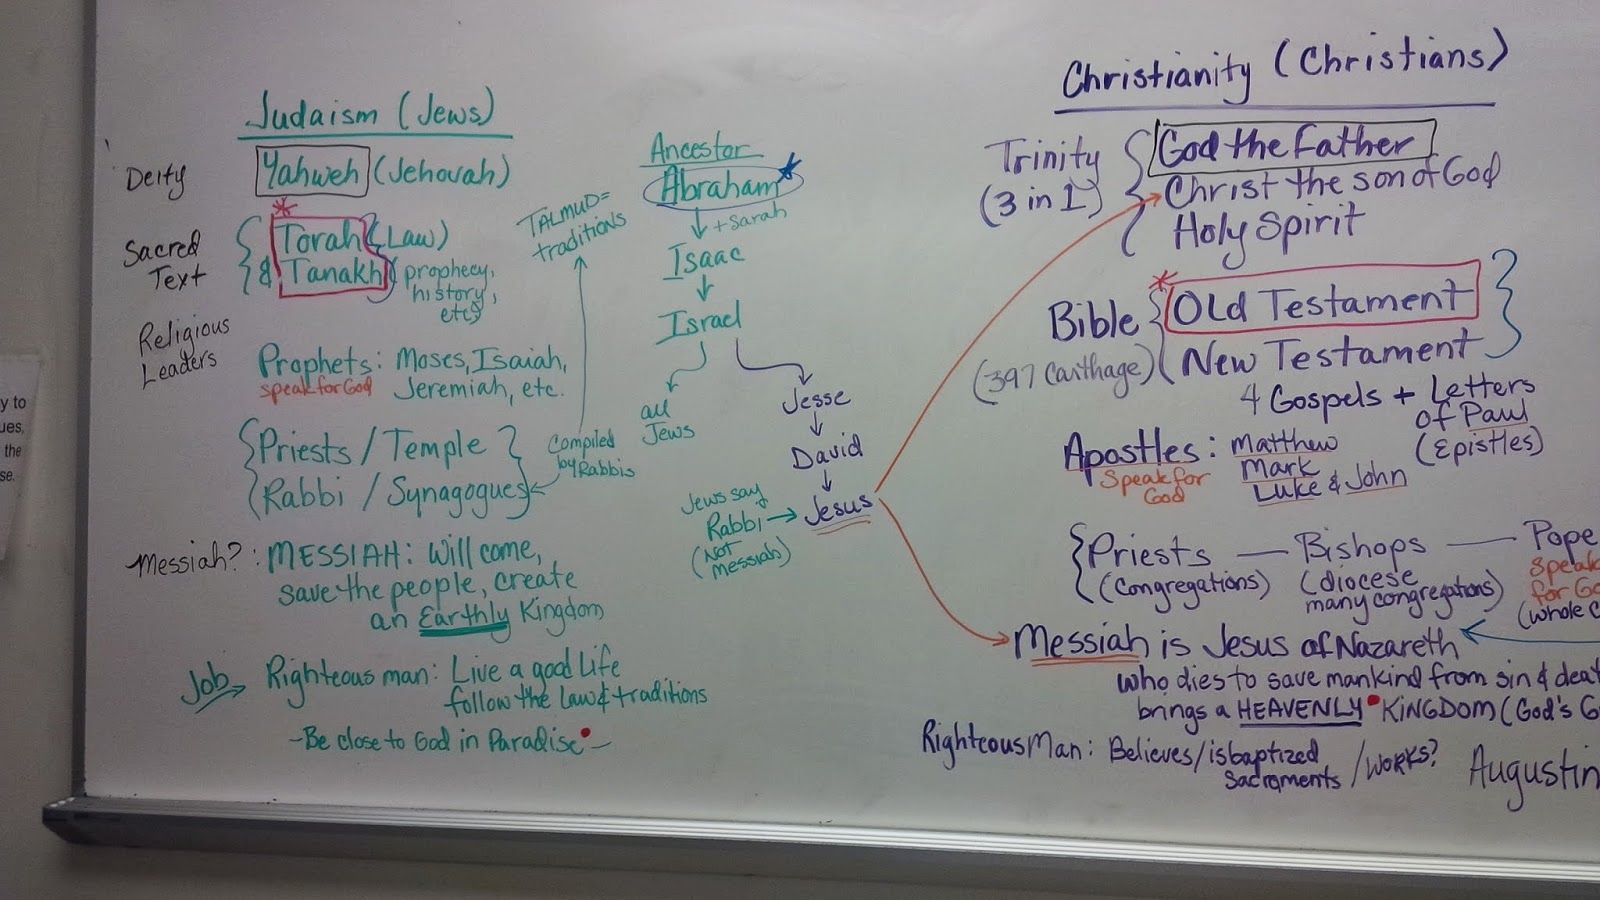 Judaism (Jews)
Deity
Yahweh (Jehovah)
Sacred
Text
* Torah (Law)
& Tanakh (prophecy,
history,
etc)
Religious
Leaders
Prophets: Moses, Isaiah,
speak for God Jeremiah, etc.
Priests / Temple
Rabbi / Synagogues
Compiled
by Rabbis
TALMUD =
traditions
Messiah? : MESSIAH: Will come,
save the people, create
an Earthly Kingdom
Job → Righteous man: Live a good Life
follow the law & traditions
- Be close to God in Paradise -
Ancestor
Abraham *
+ Sarah
Isaac
Israel
all
Jews
Jesse
David
Jesus
Jews say
Rabbi →
(not
messiah)
Christianity (Christians)
Trinity
(3 in 1)
God the Father
Christ the son of God
Holy Spirit
Bible
(397 Carthage)
* Old Testament
New Testament
4 Gospels + Letters
of Paul
(Epistles)
Apostles: Matthew
Speak for Mark
God Luke & John
Priests — Bishops — Pope
(Congregations) (diocese
many congregations)
Speak
for
(whole
Messiah is Jesus of Nazareth
who dies to save mankind from sin &
brings a HEAVENLY KINGDOM (God's
Righteous Man: Believes/is baptized /works?
Sacraments
y to
ues,
the
se.